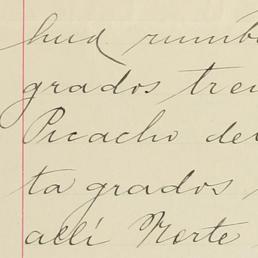 hud rumb
grados trei
Picacho de
ta grados
allí Norte